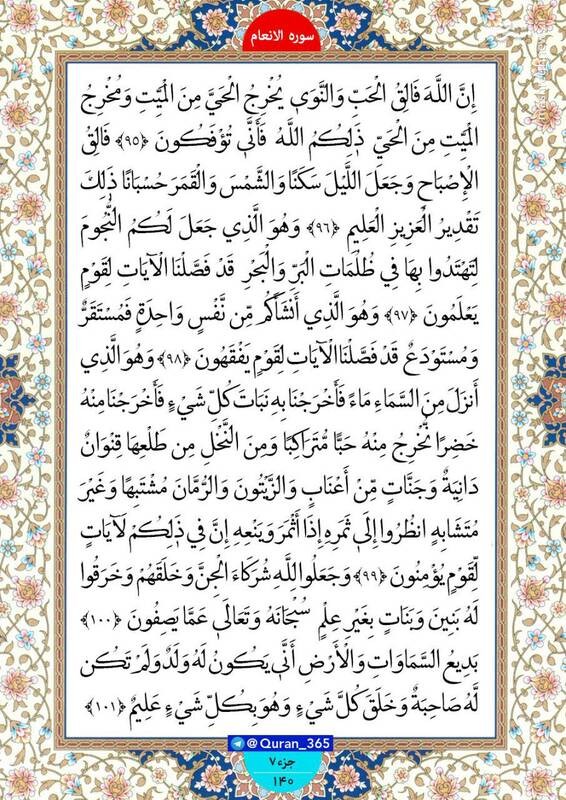 سوره الانعام
إِنَّ اللَّهَ فَالِقُ الْحَبِّ وَالنَّوَىٰ يُخْرِجُ الْحَيَّ مِنَ الْمَيِّتِ وَمُخْرِجُ
الْمَيِّتِ مِنَ الْحَيِّ ذَٰلِكُمُ اللَّهُ فَأَنَّىٰ تُؤْفَكُونَ ﴿٩٥﴾ فَالِقُ
الْإِصْبَاحِ وَجَعَلَ اللَّيْلَ سَكَنًا وَالشَّمْسَ وَالْقَمَرَ حُسْبَانًا ذَٰلِكَ
تَقْدِيرُ الْعَزِيزِ الْعَلِيمِ ﴿٩٦﴾ وَهُوَ الَّذِي جَعَلَ لَكُمُ النُّجُومَ
لِتَهْتَدُوا بِهَا فِي ظُلُمَاتِ الْبَرِّ وَالْبَحْرِ قَدْ فَصَّلْنَا الْآيَاتِ لِقَوْمٍ
يَعْلَمُونَ ﴿٩٧﴾ وَهُوَ الَّذِي أَنْشَأَكُم مِّن نَّفْسٍ وَاحِدَةٍ فَمُسْتَقَرٌّ
وَمُسْتَوْدَعٌ قَدْ فَصَّلْنَا الْآيَاتِ لِقَوْمٍ يَفْقَهُونَ ﴿٩٨﴾ وَهُوَ الَّذِي
أَنزَلَ مِنَ السَّمَاءِ مَاءً فَأَخْرَجْنَا بِهِ نَبَاتَ كُلِّ شَيْءٍ فَأَخْرَجْنَا مِنْهُ
خَضِرًا نُّخْرِجُ مِنْهُ حَبًّا مُّتَرَاكِبًا وَمِنَ النَّخْلِ مِن طَلْعِهَا قِنْوَانٌ
دَانِيَةٌ وَجَنَّاتٍ مِّنْ أَعْنَابٍ وَالزَّيْتُونَ وَالرُّمَّانَ مُشْتَبِهًا وَغَيْرَ
مُتَشَابِهٍ انظُرُوا إِلَىٰ ثَمَرِهِ إِذَا أَثْمَرَ وَيَنْعِهِ إِنَّ فِي ذَٰلِكُمْ لَآيَاتٍ
لِّقَوْمٍ يُؤْمِنُونَ ﴿٩٩﴾ وَجَعَلُوا لِلَّهِ شُرَكَاءَ الْجِنَّ وَخَلَقَهُمْ وَخَرَقُوا
لَهُ بَنِينَ وَبَنَاتٍ بِغَيْرِ عِلْمٍ سُبْحَانَهُ وَتَعَالَىٰ عَمَّا يَصِفُونَ ﴿١٠٠﴾
بَدِيعُ السَّمَاوَاتِ وَالْأَرْضِ أَنَّىٰ يَكُونُ لَهُ وَلَدٌ وَلَمْ تَكُن
لَّهُ صَاحِبَةٌ وَخَلَقَ كُلَّ شَيْءٍ وَهُوَ بِكُلِّ شَيْءٍ عَلِيمٌ ﴿١٠١﴾
@Quran_365
جزء ۷
۱۴۰